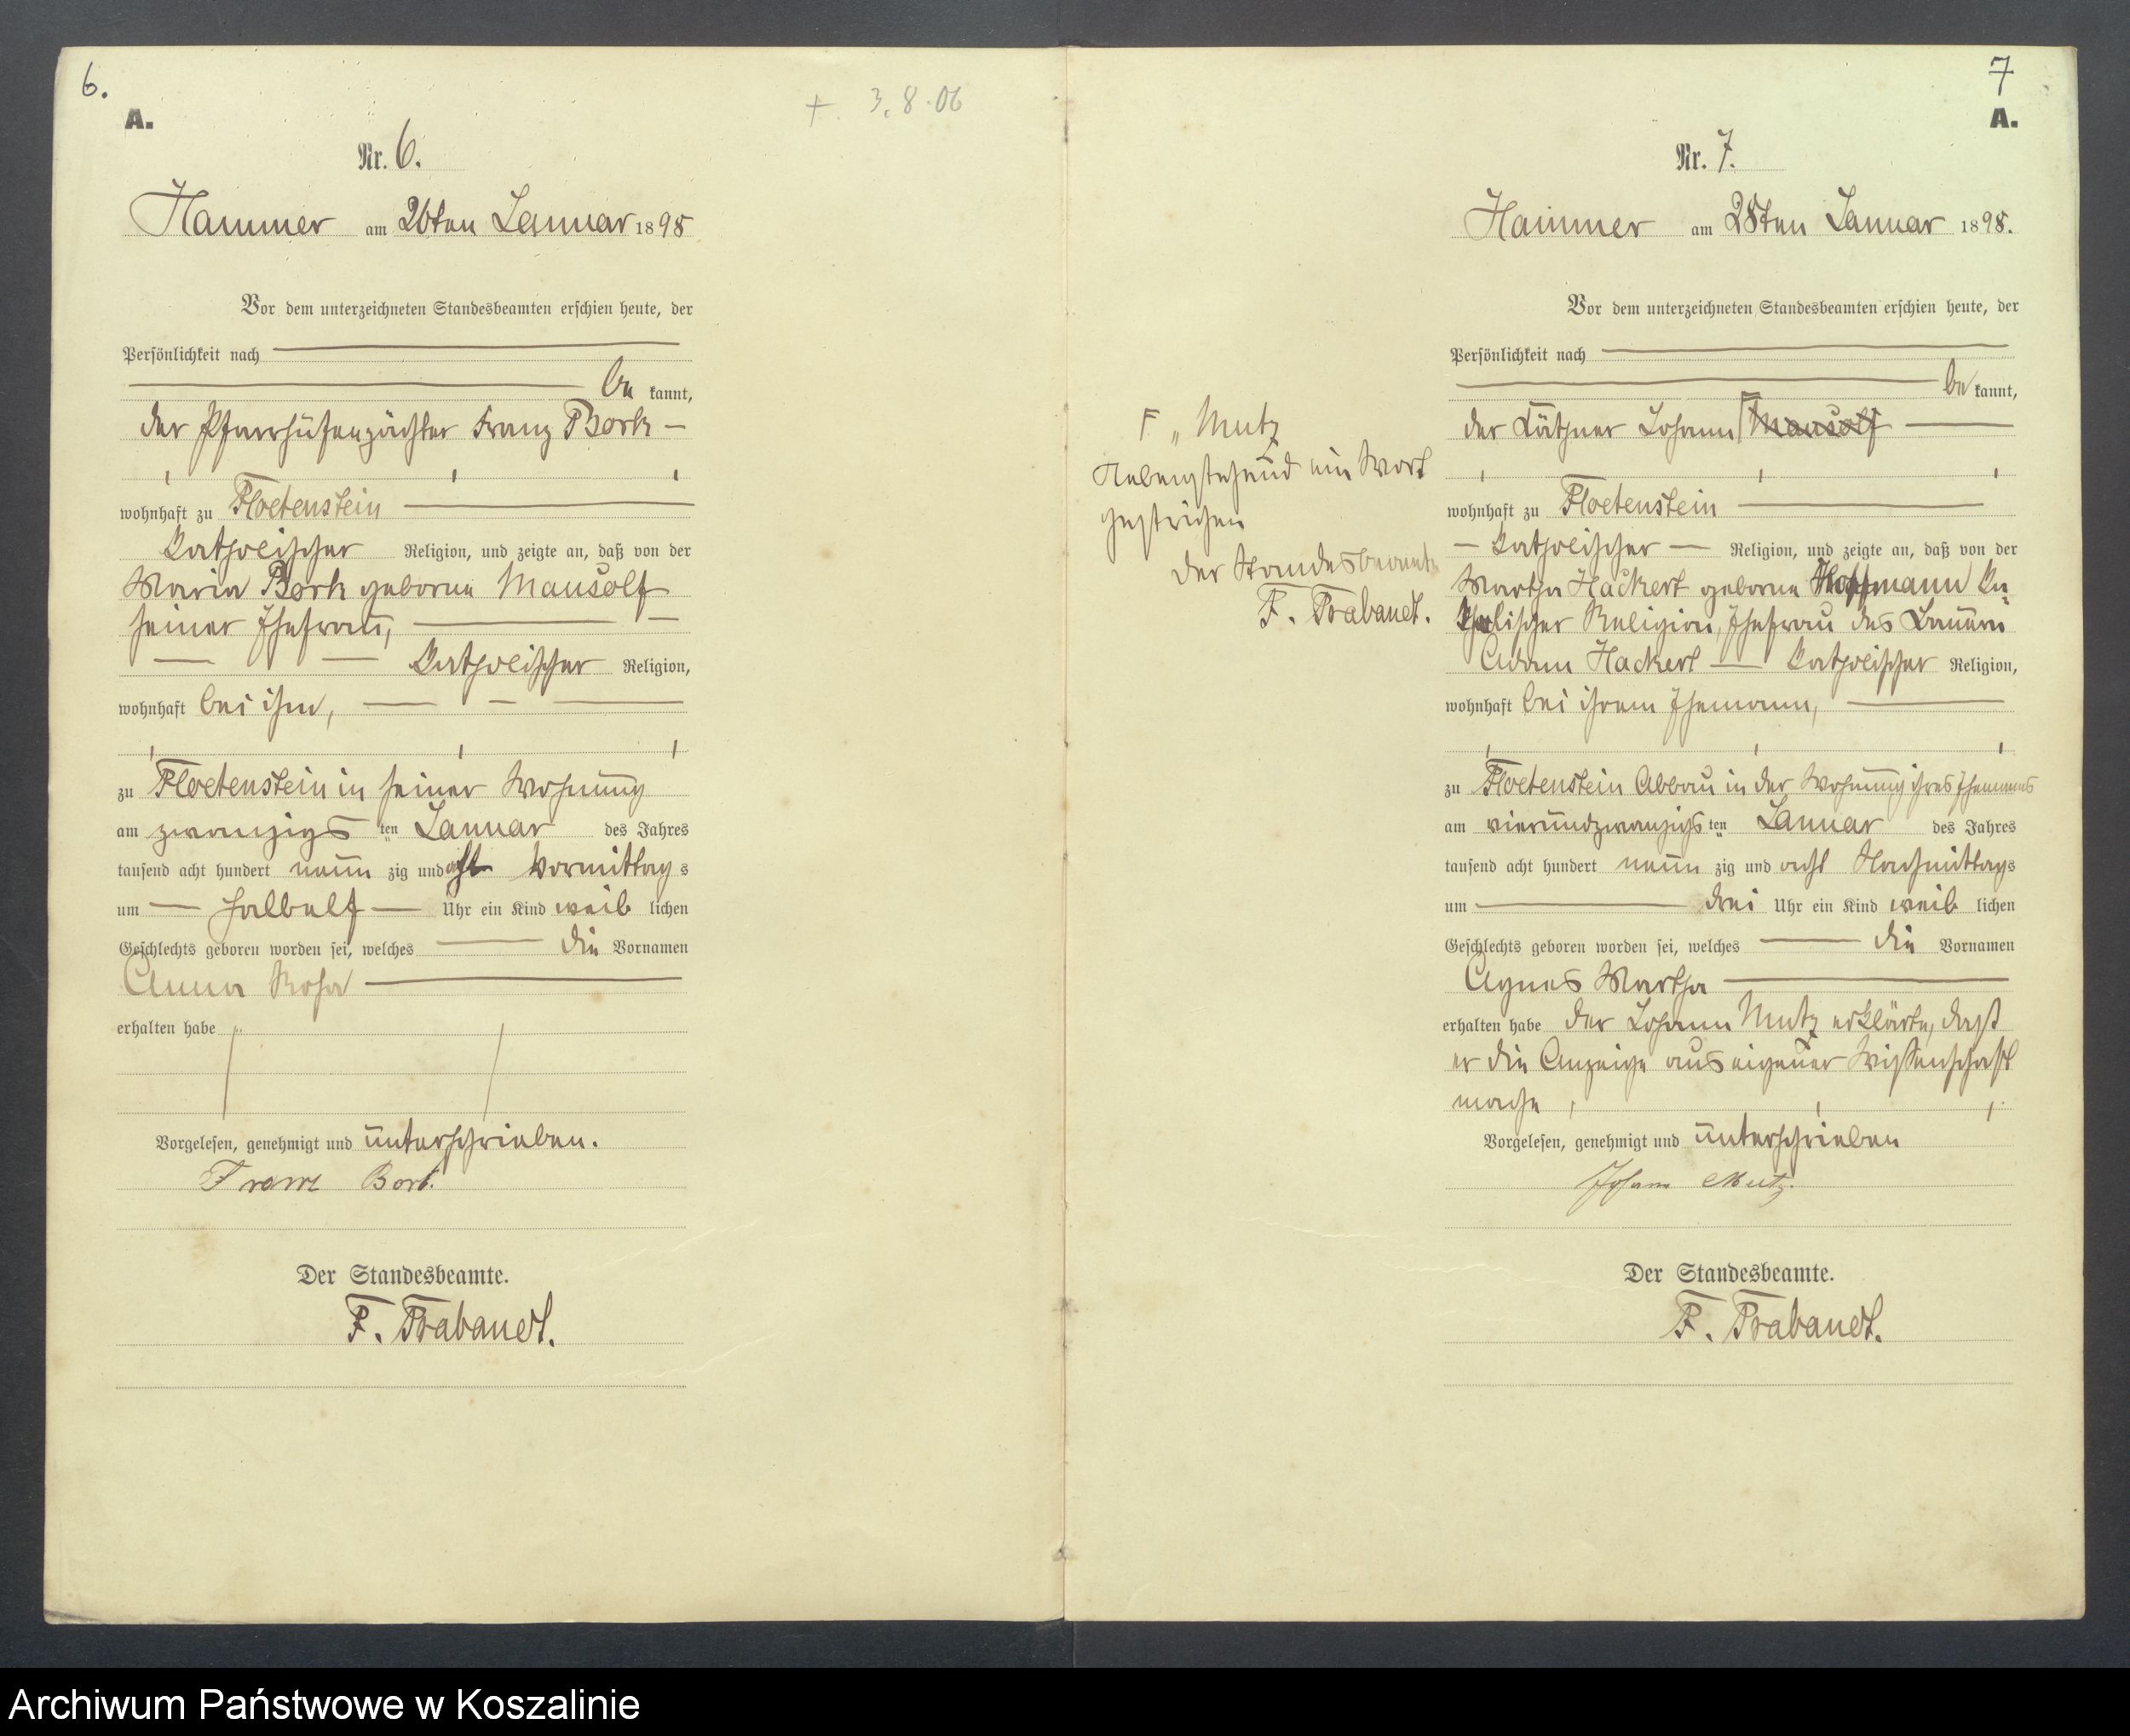 6.
A.
+ 3.8.06
Nr. 6.
Hammer am 26ten Januar 1898
Vor dem unterzeichneten Standesbeamten erschien heute, der
Persönlichkeit nach
be kannt,
der Pfarrhüfenpächter Franz Bork
wohnhaft zu Floetenstein
katholischer Religion, und zeigte an, daß von der
Maria Bork geborne Mausolf
seiner Ehefrau,
katholischer Religion,
wohnhaft bei ihm,
zu Floetenstein in seiner Wohnung
am zwanzigs ten Januar des Jahres
tausend acht hundert neun zig und acht Vormittag s
um halbelf Uhr ein Kind weib lichen
Geschlechts geboren worden sei, welches die Vornamen
Anna Rosa
erhalten habe
Vorgelesen, genehmigt und unterschrieben.
Franz Bork.
Der Standesbeamte.
F. Trabandt.
7
A.
Nr. 7.
Hammer am 28ten Januar 1898.
Vor dem unterzeichneten Standesbeamten erschien heute, der
Persönlichkeit nach
be kannt,
der Käthner Johann Γ Mausolf
wohnhaft zu Floetenstein
katholischer Religion, und zeigte an, daß von der
Martha Hackert geborne Hoffmann ka
tholischer Religion, Ehefrau des Bauern
Adam Hackert katholischer Religion,
wohnhaft bei ihrem Ehemann,
zu Floetenstein Abbau in der Wohnung ihres Ehemannes
am vierundzwanzigs ten Januar des Jahres
tausend acht hundert neun zig und acht Nachmittags
um drei Uhr ein Kind weib lichen
Geschlechts geboren worden sei, welches die Vornamen
Agnes Martha
erhalten habe der Johann Mutz erklärte, daß
er die Anzeige aus eigener Wissenschaft
mache
Vorgelesen, genehmigt und unterschrieben
Johann Mutz.
Der Standesbeamte.
F. Trabandt.
Γ „ Mutz
Nebenstehend ein Wort
gestrichen
Der Standesbeamte
F. Trabandt.
Archiwum Państwowe w Koszalinie